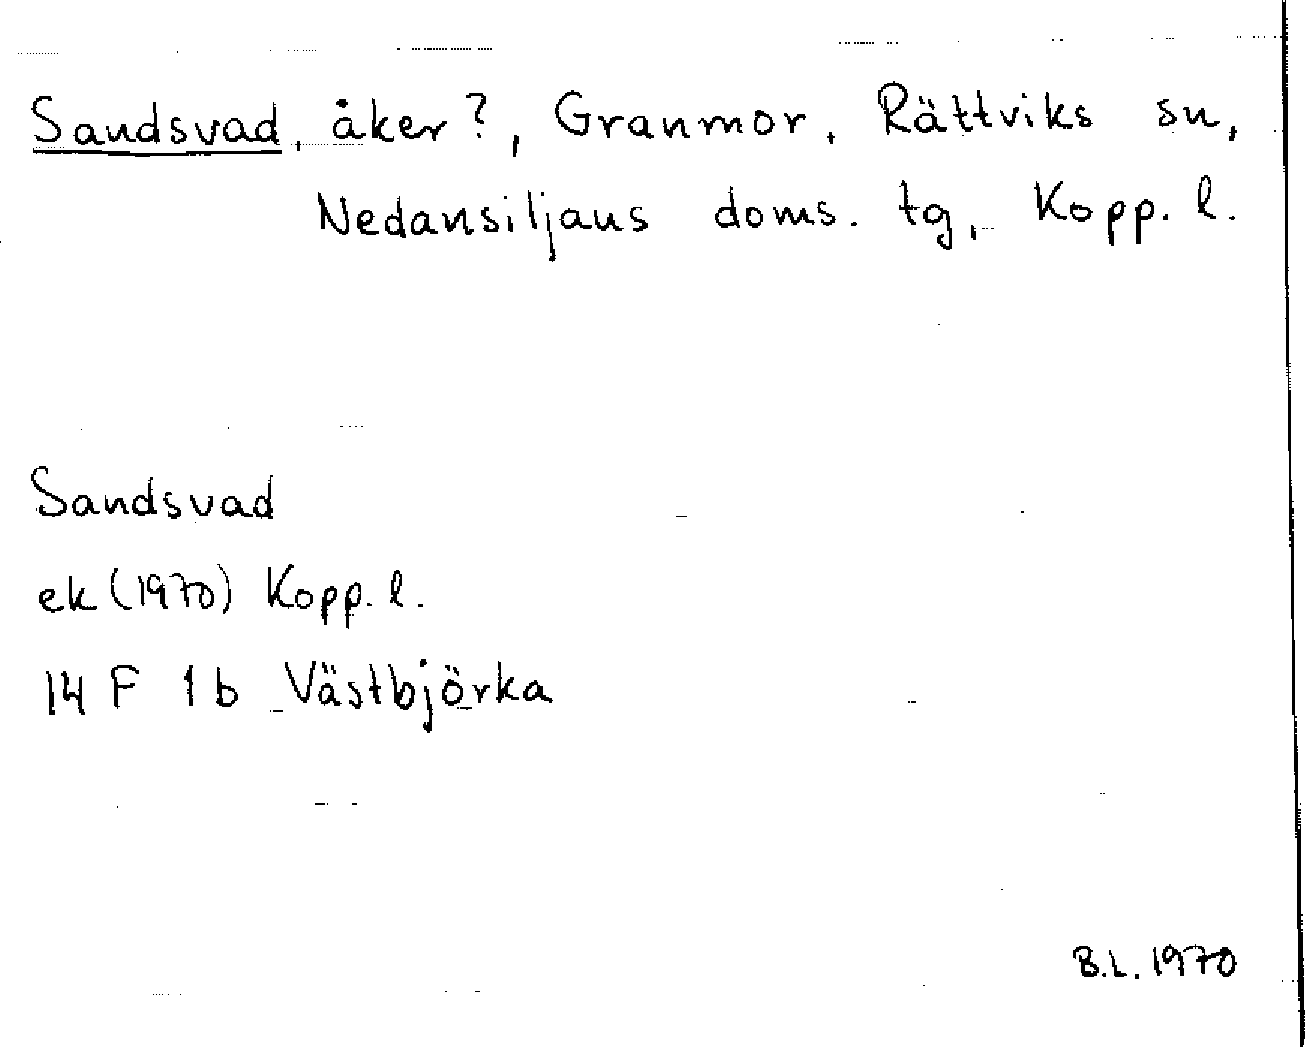 Sandsvad, åker?, Granmor, Rättviks sn,
Nedansiljans doms. tg, Kopp. l.
Sandsvad
ek (1970) Kopp. l.
14 F 1 b Västbjörka
B.L. 1970